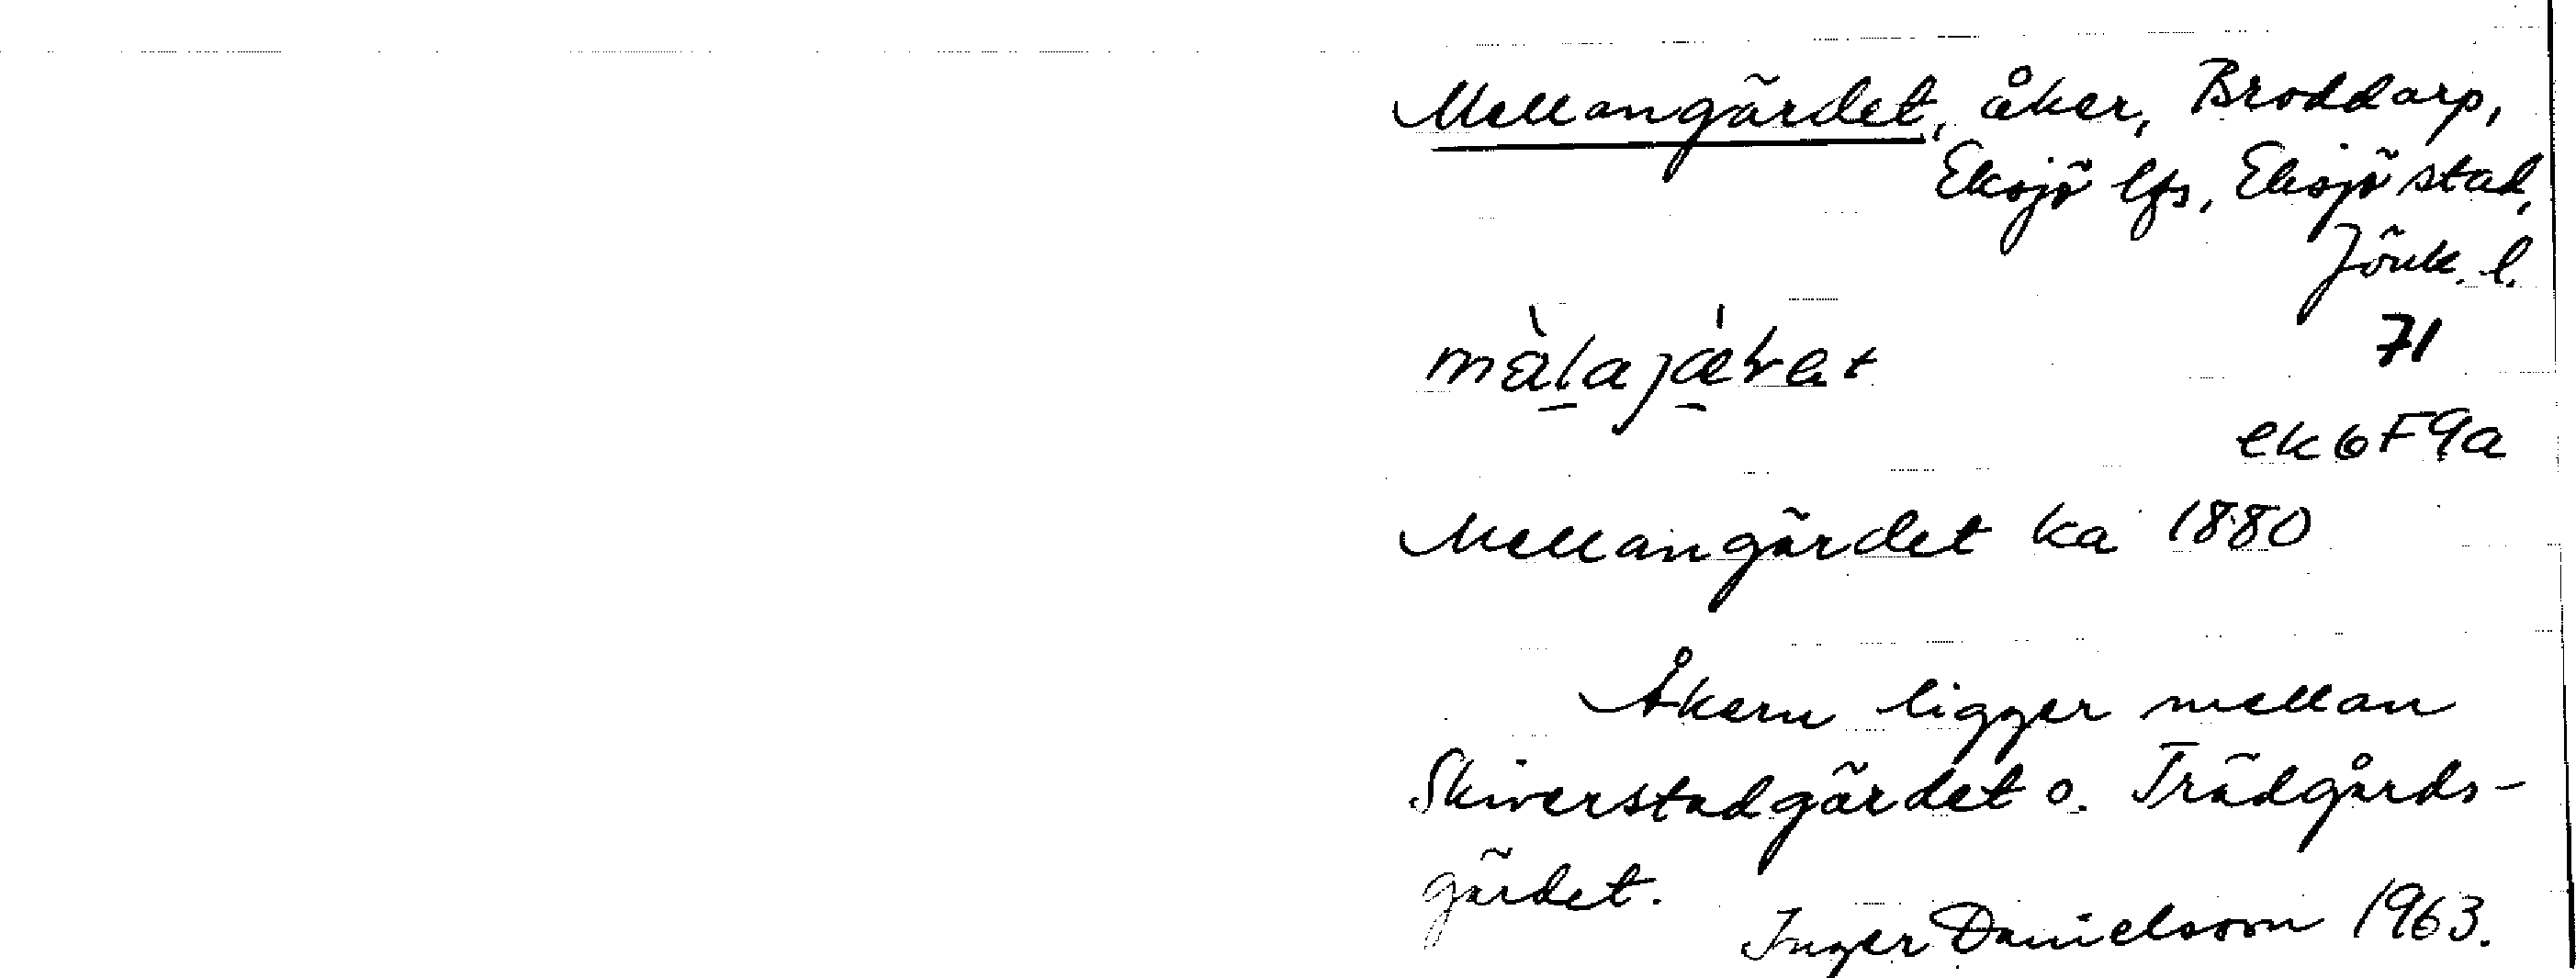 Mellangärdet, åker, Broddarp,
Eksjö lfs, Eksjö stad,
Jönk. l.
71
ek 6F9a
Mellangärdet ka 1880
Åkern ligger mellan
Skiverstadgärdet o. Trädgårds-
gärdet.
Inger Danielsson 1963.